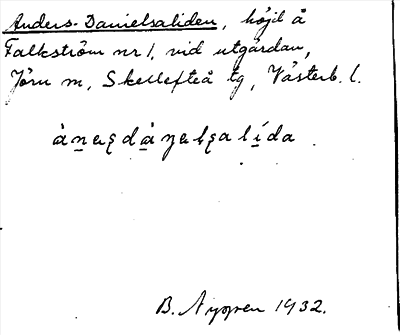 Anders-Danielsaliden, höjd å
Falkström nr 1, vid utgården,
Jörn sn, Skellefteå tg, Västerb. l.
B. Nygren 1932.